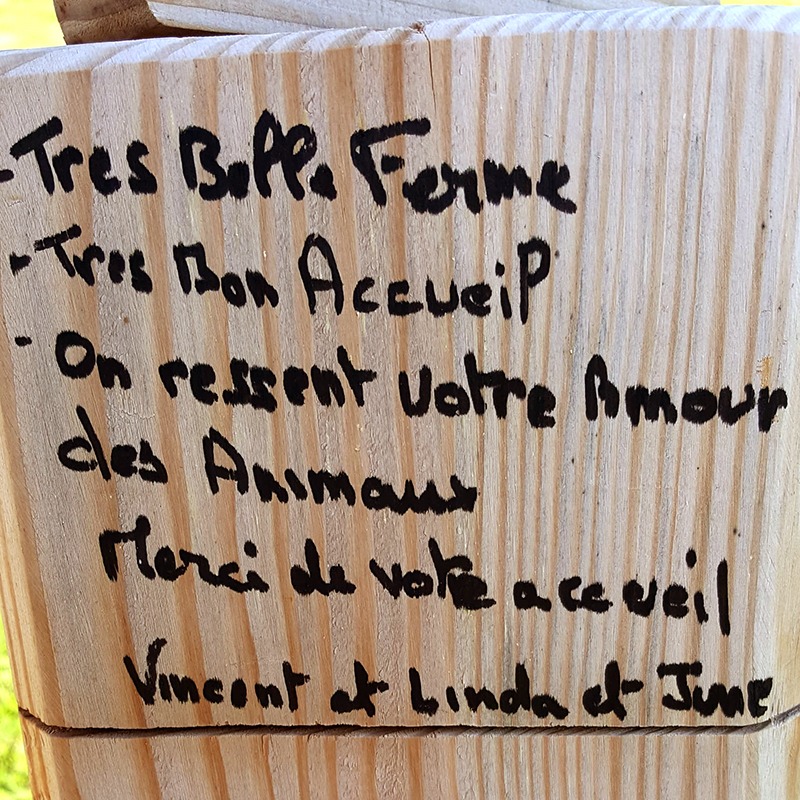 - Tres Belle Ferme
- Tres Bon Accueil
- On ressent votre Amour
des Animaux
Merci de votre accueil
Vincent et Linda et June